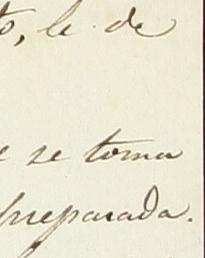 to, le de
e se toma
preparada.